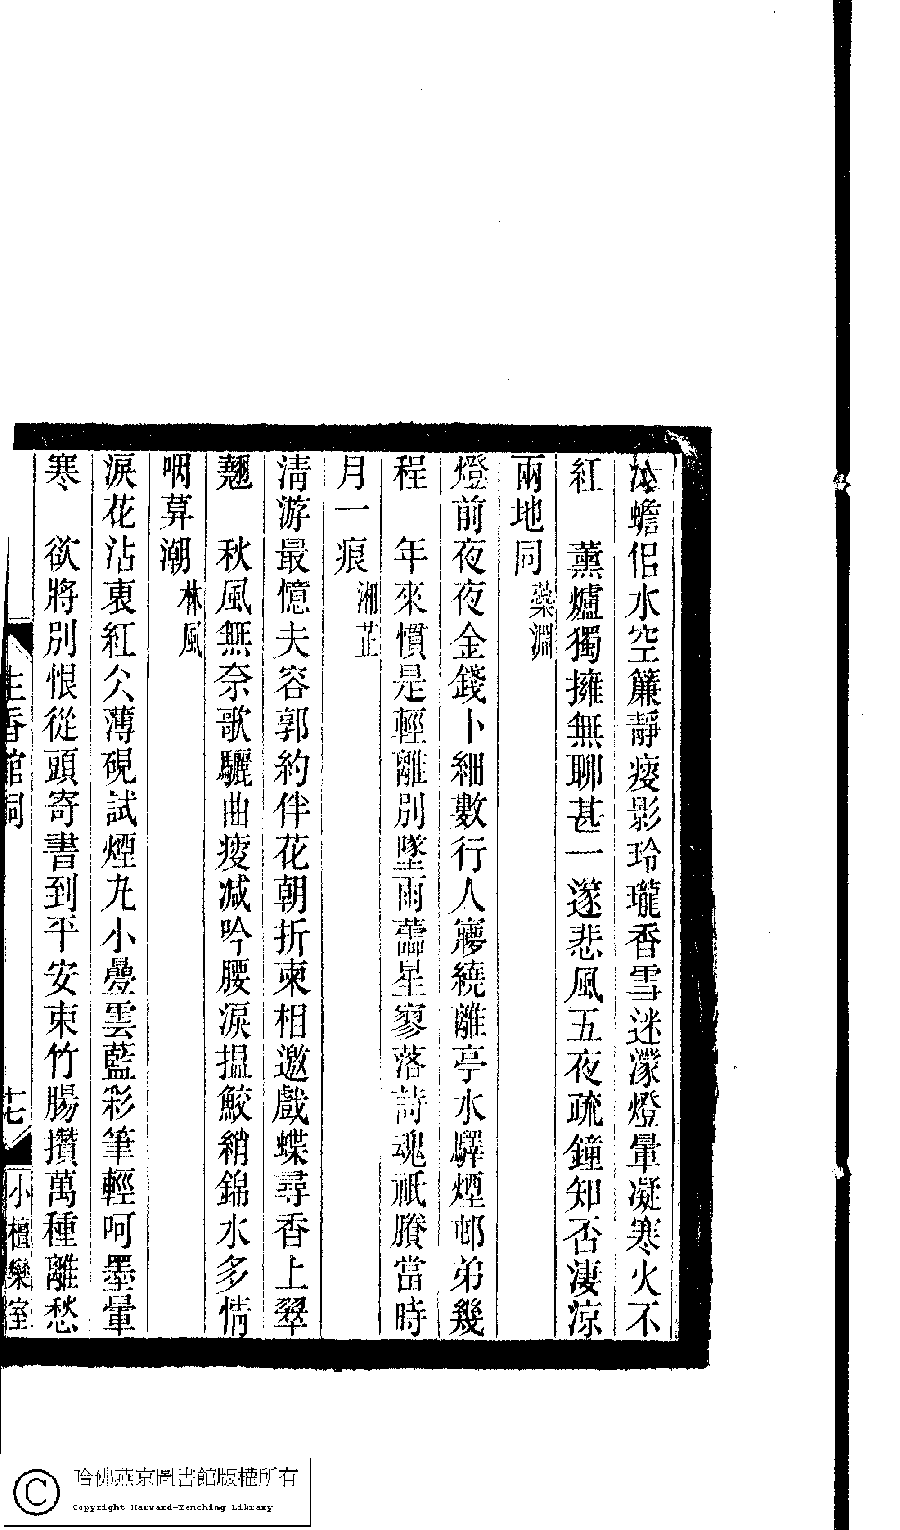 冷蟾侶水空簾靜瘦影玲瓏香雪迷濛燈暈凝寒火不
紅　薰爐獨擁無聊甚一邃悲風五夜疏鐘知否淒涼
兩地同 藥淵
燈前夜夜金錢卜細數行人寱繞離亭水驛煙邨弟幾
程　年來慣是輕離別墜雨蘦星寥落詩魂祇賸當時
月一痕 湘芷
淸游最憶夫容郭約伴花朝折柬相邀戲蝶尋香上翠
翹　秋風無奈歌驪曲瘦减吟腰淚搵鮫綃錦水多情
咽莫潮 林風
淚花沾裛紅仌薄硯試煙丸小疊雲藍彩筆輕呵墨暈
寒　欲將別恨從頭寄書到平安束竹腸攢萬種離愁
生香館詞
十七
小檀欒室
哈佛燕京圖書館版權所有
Copyright Harvard-Yenching Library